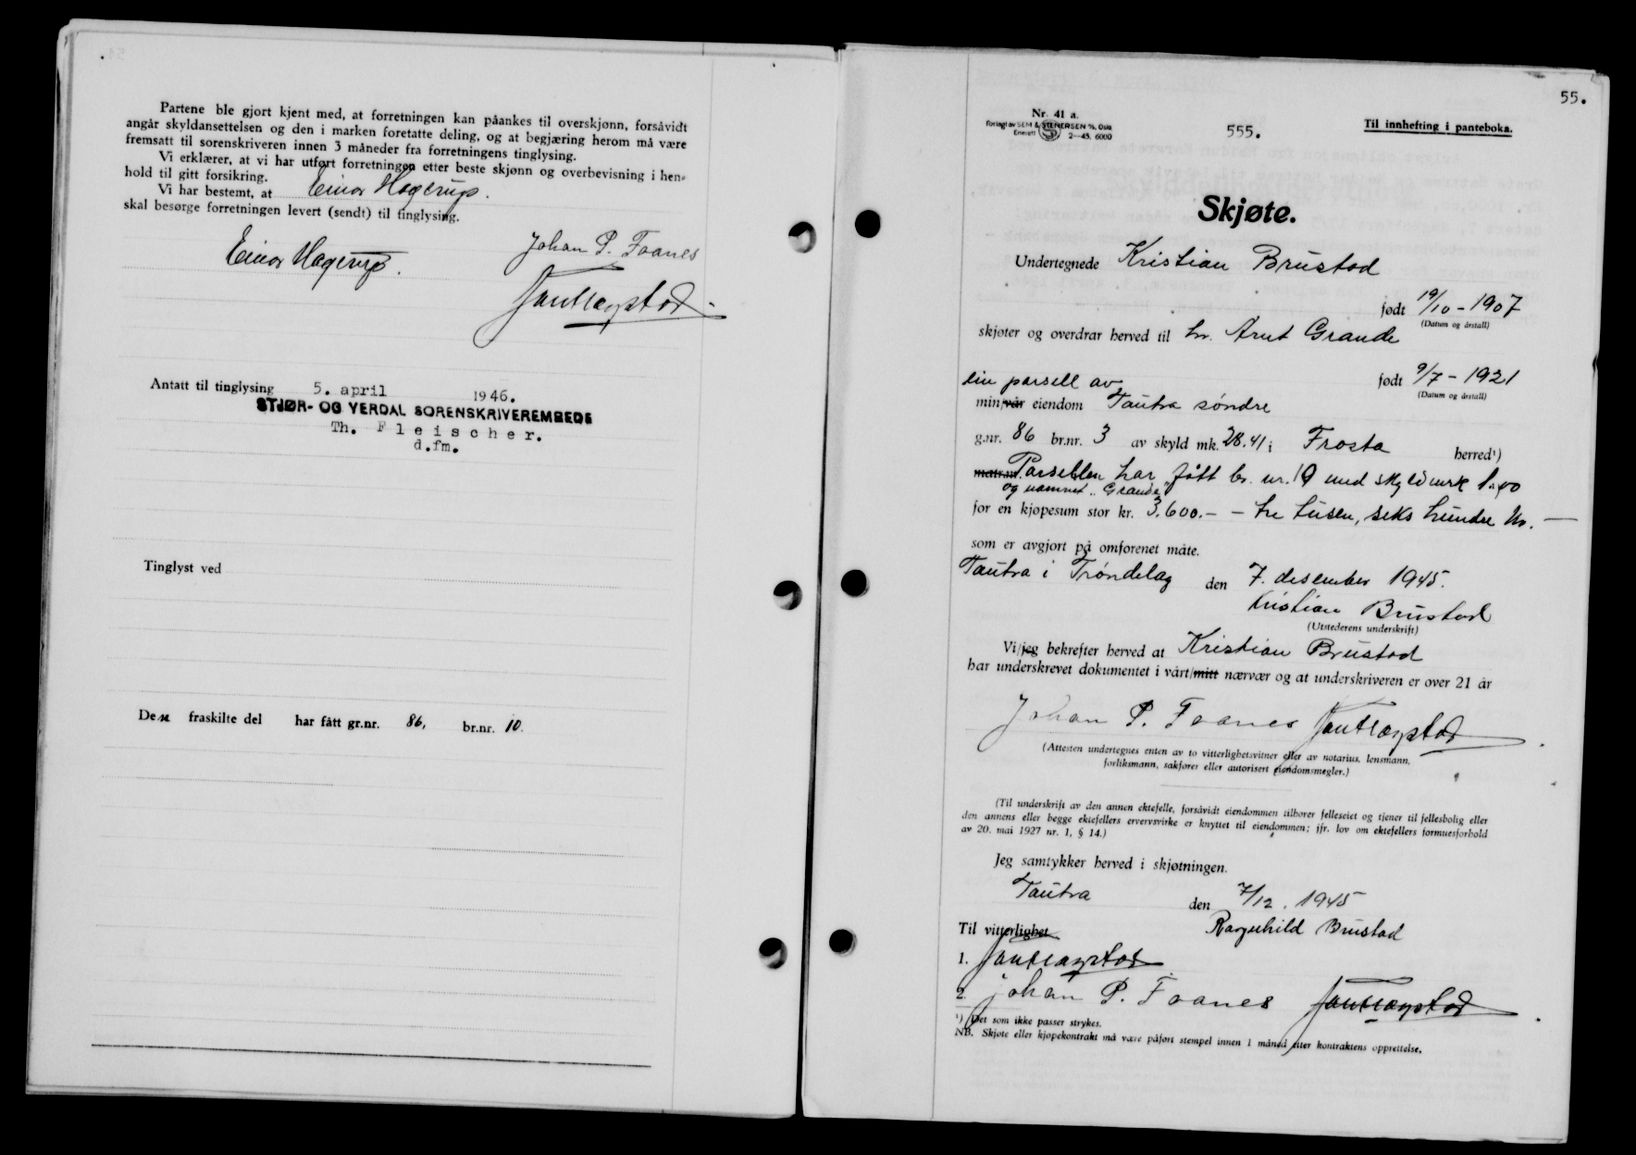 Partene ble gjort kjent med, at forretningen kan påankes til overskjønn, forsåvidt
angår skyldansettelsen og den i marken foretatte deling, og at begjæring herom må være
fremsatt til sorenskriveren innen 3 måneder fra forretningens tinglysing.
Vi erklærer, at vi har utført forretningen etter beste skjønn og overbevisning i hen-
hold til gitt forsikring.
Vi har bestemt, at Einar Hagerup.
skal besørge forretningen levert (sendt) til tinglysing.
Einar Hagerup. Johan P. Faanes
Antatt til tinglysing 5. april 1946.
STJØR- OG VERDAL SORENSKRIVEREMBEDE
Th. Fleischer.
d.fm.
Tinglyst ved
Den fraskilte del har fått gr.nr. 86, br.nr. 10.
55.
Nr. 41 a.
Forlagt av SEM & STENERSEN A/S, Oslo
Enerett 2-45. 6000
555.
Til innhefting i panteboka.
Skjøte.
Undertegnede Kristian Brustad
født 19/10 - 1907
(Datum og årstall)
skjøter og overdrar herved til hr. Arnt Grande
født 9/7 - 1921
(Datum og årstall)
ein parsell av
min/vår eiendom Tautra søndre
g.nr. 86 br.nr. 3 av skyld mk. 28.41 i Frosta herred¹)
matr.nr. Parsellen har fått br. nr. 10 med skyldmrk 1.00
og namnet „Grande"
for en kjøpesum stor kr. 3.600.- - tre tusen, seks hundre kr. —
som er avgjort på omforenet måte.
Tautra i Trøndelag den 7. desember 1945.
Kristian Brustad
(Utstederens underskrift)
Vi/jeg bekrefter herved at Kristian Brustad
har underskrevet dokumentet i vårt/mitt nærvær og at underskriveren er over 21 år
Johan P. Faanes
(Attesten undertegnes enten av to vitterlighetsvitner eller av notarius, lensmann,
forliksmann, sakfører eller autorisert eiendomsmegler.)
(Til underskrift av den annen ektefelle, forsåvidt eiendommen tilhører felleseiet og tjener til fellesbolig eller
den annens eller begge ektefellers ervervsvirke er knyttet til eiendommen; jfr. lov om ektefellers formuesforhold
av 20. mai 1927 nr. 1, § 14.)
Jeg samtykker herved i skjøtningen.
Tautra den 7/12. 1945
Ragnhild Brustad
Til vitterlighet
1.
2. Johan P. Faanes
¹) Det som ikke passer strykes.
NB. Skjøte eller kjøpekontrakt må være påført stempel innen 1 måned etter kontraktens opprettelse.